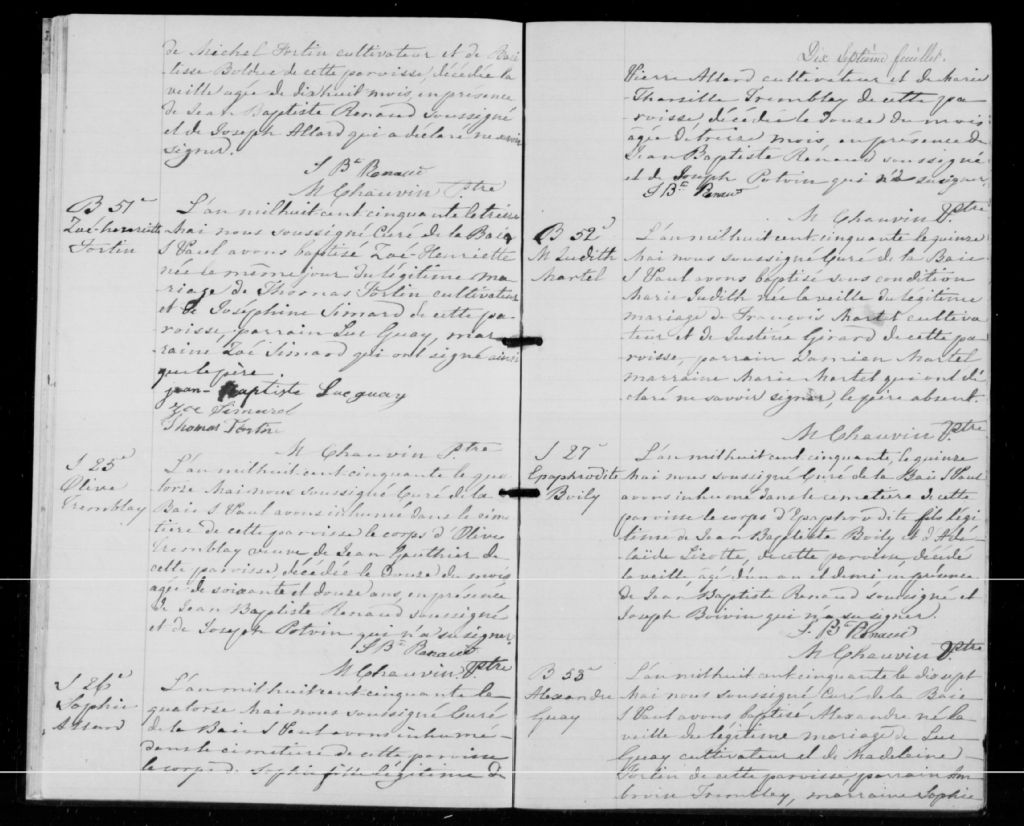 de Michel Fortin cultivateur et de Bap
tisse Boldue de cette paroisse, décédée la
veille agée de dixhuit mois, en présence
de Jean Baptiste Renaud soussigné
et de Joseph Allard qui a declaré ne savoir
signer.
J Bte Renaud
M Chauvin Ptre
B 51e
Zoé-henriette
Fortin
L'an mil huit cent cinquante le treize
Mai nous soussigné Curé de la Baie
S Paul avons baptisé Zoé-Henriette
née le même jour du légitime ma
riage de Thomas Fortin cultivateur
et de Joséphine Simard de cette pa-
roisse, parrain Luc Guay, mar
raine Zoé Simard qui ont signé ainsi
que le père.
jean-Baptiste Luc guay
zoé Simard
Thomas Fortin
M Chauvin Ptre
S 25e
Olive
Tremblay
L'an mil huit cent cinquante le qua
torze Mai nous soussigné Curé de la
Baie S Paul avons inhumé dans le cime
tière de cette paroisse le corps d'Olive
Tremblay veuve de Jean Gauthier de
cette paroisse, décédée le douze du mois
agée de soixante et douze ans, en présence
de Jean Baptiste Renaud soussigné
et de Joseph Potvin qui n'a su signer.
J Bte Renaud
M Chauvin Ptre
S 26e
Sophie
Allard
L'an mil huit cent cinquante le
quatorze Mai nous soussigné Curé
de la Baie S Paul avons inhumé
dans le cimetière de cette paroisse
le corps de Sophie fille légitime de
Dix septième feuillet.
Pierre Allard cultivateur et de Marie
Tharsille Tremblay de cette pa-
roisse, décédée le douze du mois
agée de treize mois, en présence de
Jean Baptiste Renaud soussigné
et de Joseph Potvin qui n'a su signer.
J Bte Renaud
M Chauvin Ptre
B 52e
M Judith
Martel
L'an mil huit cent cinquante le quinze
Mai nous soussigné Curé de la Baie
S Paul avons baptisé sous condition
Marie Judith née la veille du légitime
mariage de François Martel cultiva
teur et de Justine Girard de cette pa
roisse, parrain Damien Martel
marraine Marie Martel qui ont dé
claré ne savoir signer, le père absent.
M Chauvin Ptre
S 27e
Epaphrodite
Boily
L'an mil huit cent cinquante, le quinze
Mai nous soussigné Curé de la Baie S Paul
avons inhumé dans le cemetière de cette
paroisse le corps d'Epaphrodite fils légi
time de Jean Baptiste Boily et d'Adé
laïde Lizotte, de cette paroisse, décédé
la veille, âgé d'un an et demi, en présence
de Jean Baptiste Renaud soussigné et
Joseph Boivin qui n'a su signer.
J. Bte Renaud
M Chauvin Ptre
B 53e
Alexandre
Guay
L'an mil huit cent cinquante le dixsept
Mai nous soussigné Curé de la Baie
S Paul avons baptisé Alexandre né la
veille du légitime mariage de Luc
Guay cultivateur et de Madeleine
Fortin de cette paroisse, parrain Am
broise Tremblay, marraine Sophie